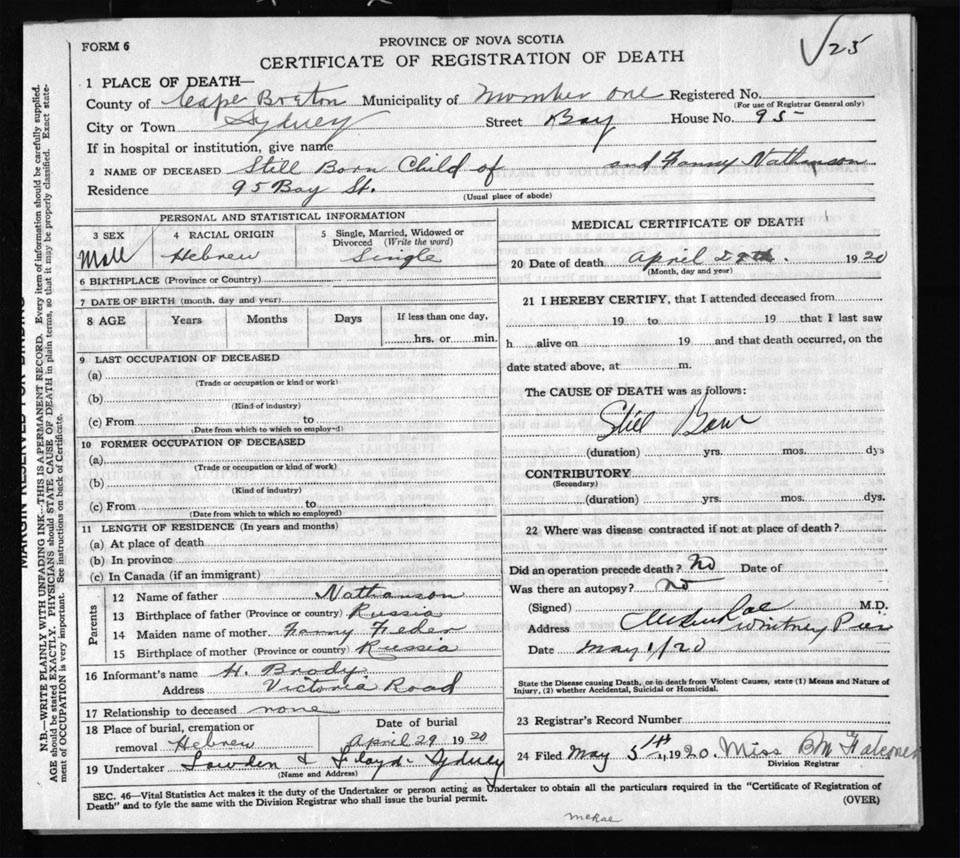 √25
FORM 6
PROVINCE OF NOVA SCOTIA
CERTIFICATE OF REGISTRATION OF DEATH
1 PLACE OF DEATH—
County of Cape Breton Municipality of Number One Registered No.
(For use of Registrar General only)
City or Town Sydney Street Bay House No. 95
If in hospital or institution, give name
2 NAME OF DECEASED Still Born Child of and Fanny Nathanson
Residence 95 Bay St.
(Usual place of abode)
PERSONAL AND STATISTICAL INFORMATION
3 SEX 4 RACIAL ORIGIN 5 Single, Married, Widowed or
Divorced (Write the word)
Male Hebrew Single
6 BIRTHPLACE (Province or Country)
7 DATE OF BIRTH (month, day and year)
8 AGE Years Months Days If less than one day,
hrs. or min.
9 LAST OCCUPATION OF DECEASED
(a)
(Trade or occupation or kind or work)
(b)
(Kind of industry)
(c) From to
(Date from which to which so employed)
10 FORMER OCCUPATION OF DECEASED
(a)
(Trade or occupation or kind of work)
(b)
(Kind of industry)
(c) From to
(Date from which to which so employed)
11 LENGTH OF RESIDENCE (In years and months)
(a) At place of death
(b) In province
(c) In Canada (if an immigrant)
Parents
12 Name of father Nathanson
13 Birthplace of father (Province or country) Russia
14 Maiden name of mother Fanny Feder
15 Birthplace of mother (Province or country) Russia
16 Informant's name H. Brody
Address Victoria Road
17 Relationship to deceased none
18 Place of burial, cremation or Date of burial
removal Hebrew April 29 1920
19 Undertaker Lowden & Floyd - Sydney
(Name and Address)
MEDICAL CERTIFICATE OF DEATH
20 Date of death April 28th. 1920
(Month, day and year)
21 I HEREBY CERTIFY, that I attended deceased from
19 to 19 that I last saw
h alive on 19 and that death occurred, on the
date stated above, at m.
The CAUSE OF DEATH was as follows:
Still Born
(duration) yrs. mos. dys
CONTRIBUTORY
(Secondary)
(duration) yrs. mos. dys.
22 Where was disease contracted if not at place of death?
Did an operation precede death? No Date of
Was there an autopsy? No
(Signed) M.D.
Address Whitney Pier
Date May 1/20
State the Disease causing Death, or in death from Violent Causes, state (1) Means and Nature of
Injury, (2) whether Accidental, Suicidal or Homicidal.
23 Registrar's Record Number
24 Filed May 5th, 1920. Miss BM Falconer
Division Registrar
SEC. 46—Vital Statistics Act makes it the duty of the Undertaker or person acting as Undertaker to obtain all the particulars required in the "Certificate of Registration of
Death" and to fyle the same with the Division Registrar who shall issue the burial permit. (OVER)
McRae
MARGIN RESERVED FOR BINDING
N.B.—WRITE PLAINLY WITH UNFADING INK—THIS IS A PERMANENT RECORD. Every item of information should be carefully supplied.
AGE should be stated EXACTLY. PHYSICIANS should STATE CAUSE OF DEATH in plain terms, so that it may be properly classified. Exact state-
ment of OCCUPATION is very important. See instructions on back of Certificate.